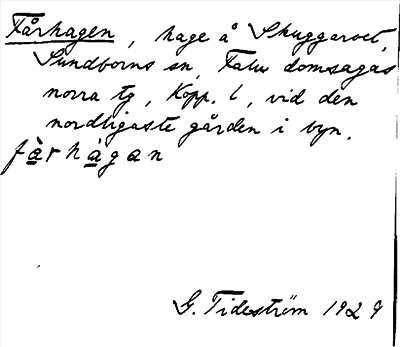 Fårhagen, hage å Skuggarvet,
Sundborns sn, Falu domsagas
norra tg, Kopp. l, vid den
nordligaste gården i byn.
fàrhàgan
G. Tideström 1929